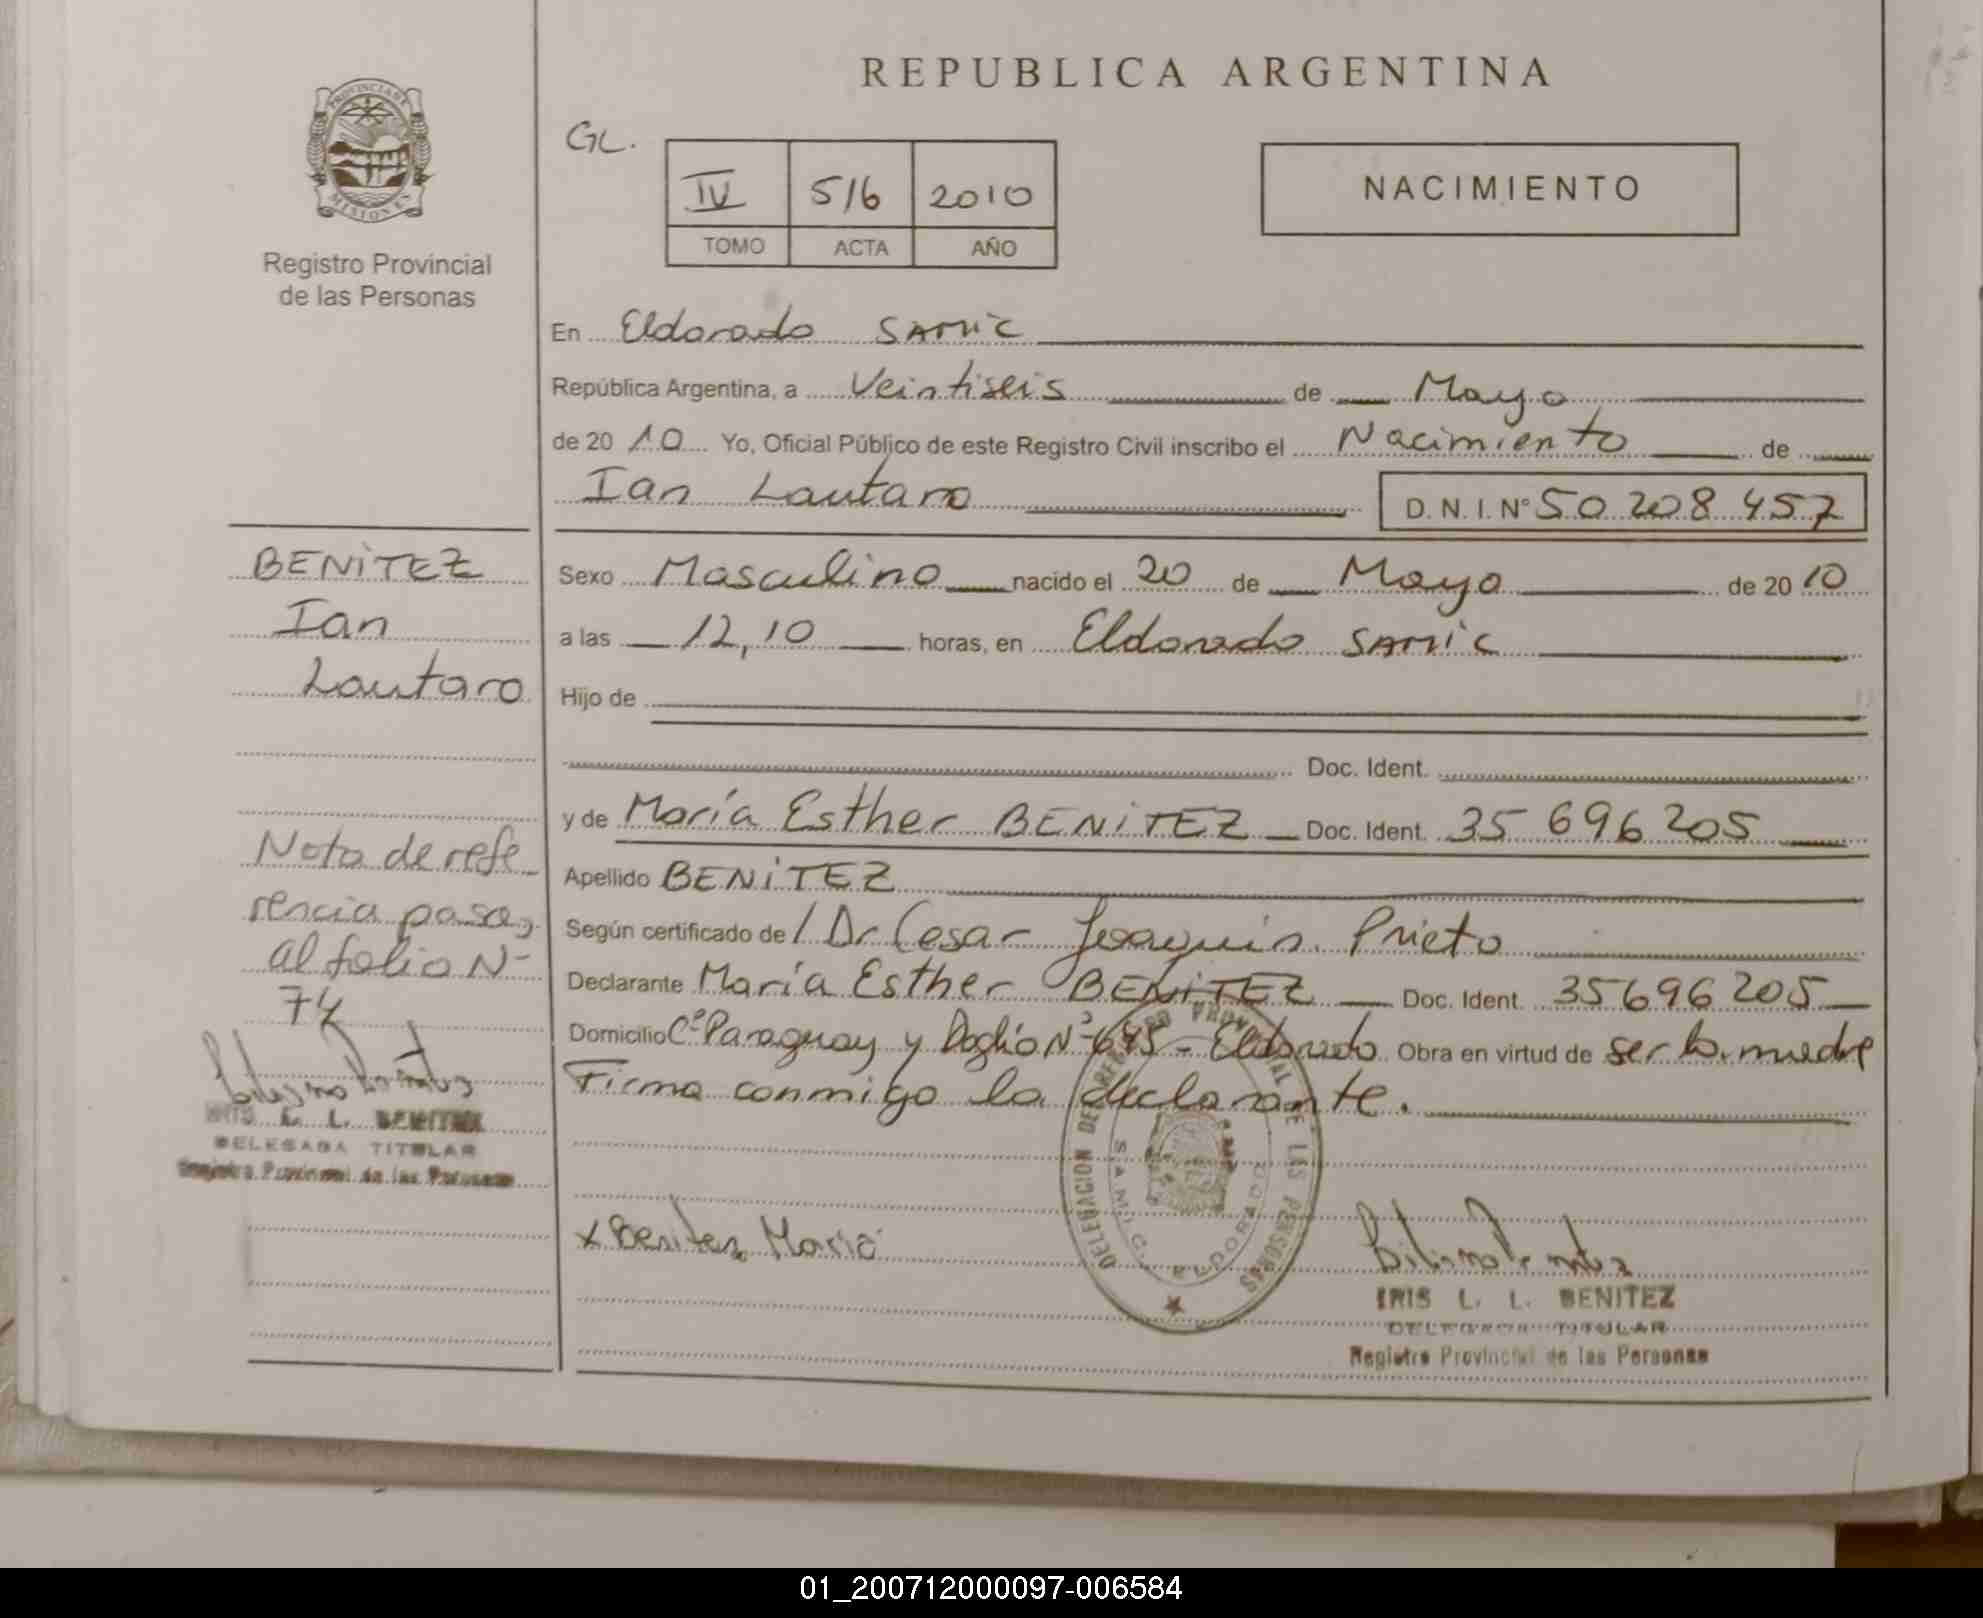 REPUBLICA ARGENTINA
PROVINCIA DE
MISIONES
Registro Provincial
de las Personas
GL.
IV 516 2010
TOMO ACTA AÑO
NACIMIENTO
En Eldorado SAMIC
República Argentina, a Veintiseis de Mayo
de 20 10 Yo, Oficial Público de este Registro Civil inscribo el Nacimiento de
Ian Lautaro D.N.I. N° 50 208 457
Sexo Masculino nacido el 20 de Mayo de 20 10
a las 12,10 horas, en Eldorado SAMIC
Hijo de
Doc. Ident.
y de María Esther BENITEZ Doc. Ident. 35 696 205
Apellido BENITEZ
Según certificado de Dr Cesar Joaquin Prieto
Declarante María Esther BENITEZ Doc. Ident. 35696205
Domicilio Cº Paraguay y Nº 645 - Eldorado Obra en virtud de ser la madre
Firma conmigo la declarante.
BENITEZ
Ian
Lautaro
Nota de refe
rencia pasa
al folio N-
74
IRIS L. L. BENITEZ
DELEGADA TITULAR
Registro Provincial de las Personas
x Benitez Maria
DELEGACION DEL REGISTRO PROVINCIAL DE LAS PERSONAS
S.A.M.I.C. ELDORADO
IRIS L. L. BENITEZ
DELEGADA TITULAR
Registro Provincial de las Personas
01_200712000097-006584